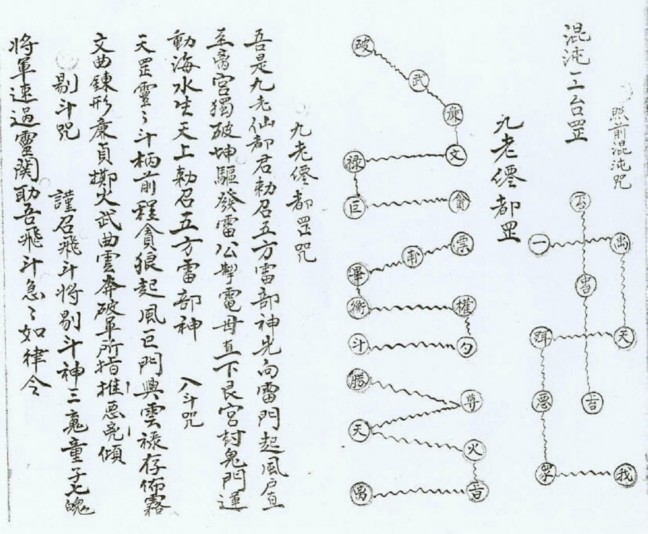 混沌三台罡
照前混沌咒
一 炁 天
吉
我
九老僊都罡
破 武 廉 文 祿 巨 貪
雲 衝 權 斗 勺
尊 天 火 吉
九老僊都罡咒
吾是九老仙都君勅召五方雷部神先向雷門起風戶直
至帝宮獨破坤驅發雷公掣電母直下艮宮封鬼門運
動海水生天上勅召五方雷部神 入斗咒
天罡靈々斗柄前程貪狼起風巨門興雲祿存佈霧
文曲鍊形廉貞擲火武曲雲奔破軍所指摧惡荒傾
剔斗咒 謹召飛斗將剔斗神三魂童子七魄
將軍速過靈関助吾飛斗急々如律令